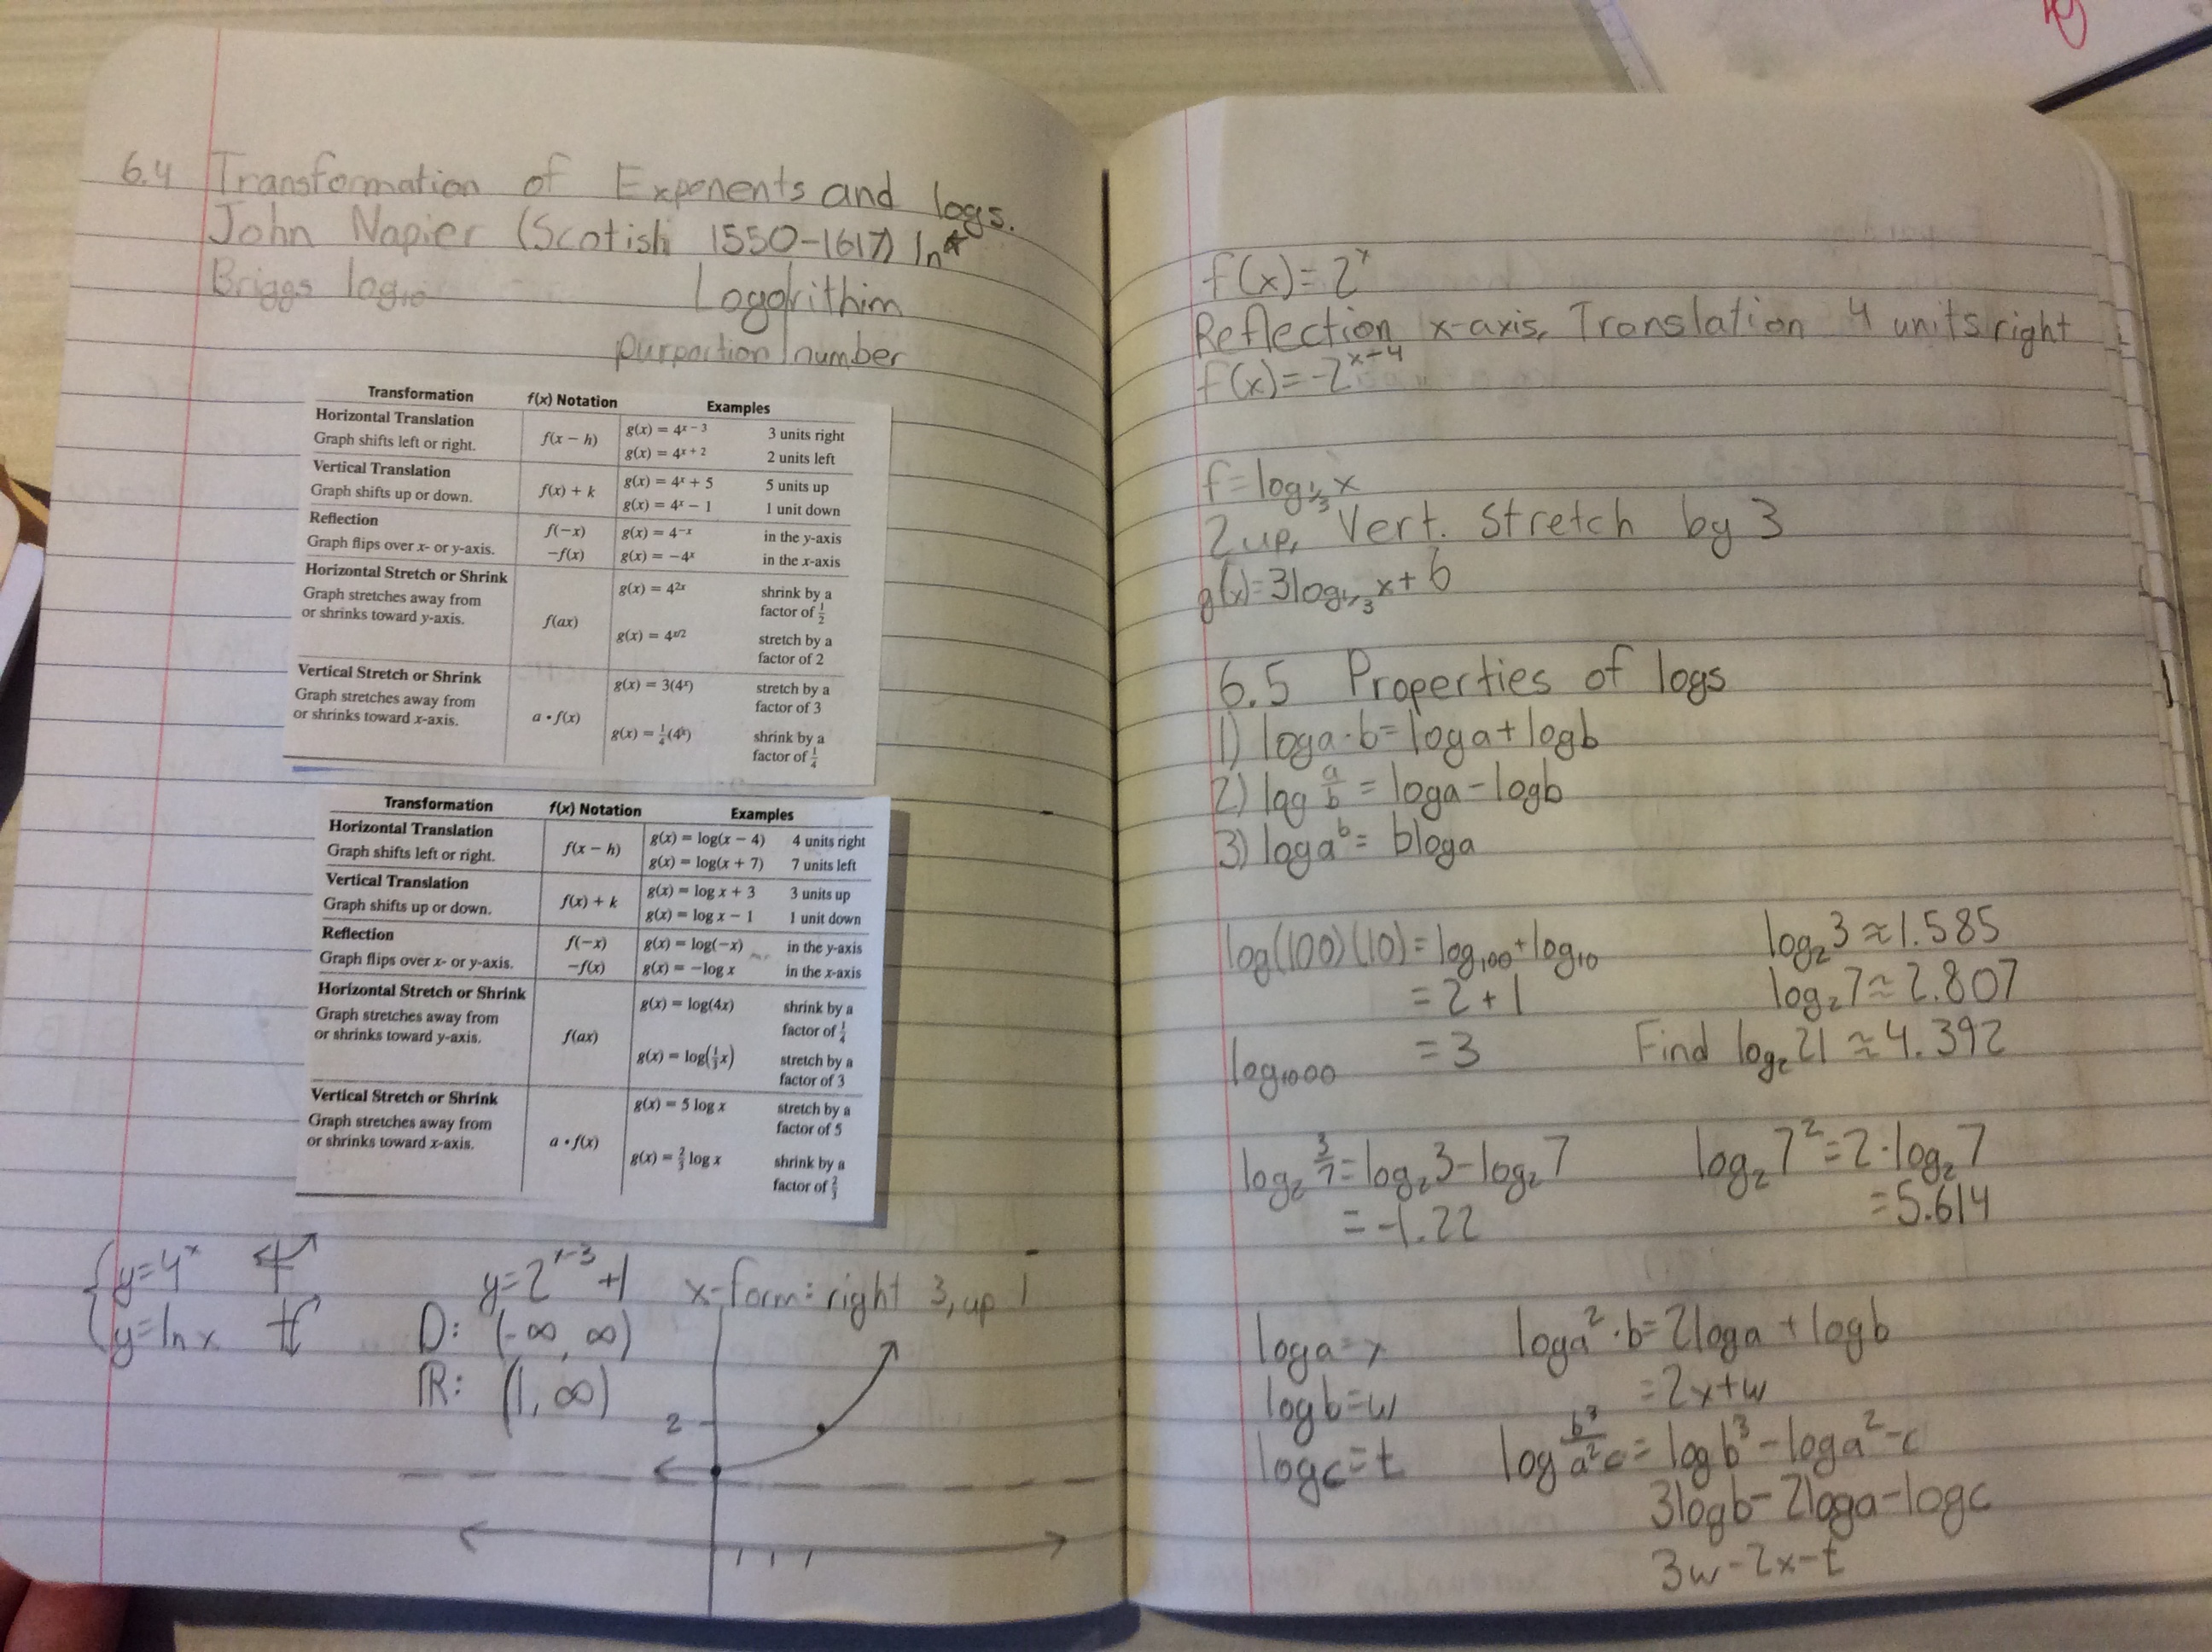 6.4 Transformation of Exponents and logs.
John Napier (Scotish 1550-1617) ln*
Briggs log₁₀ Logorithim
purportion number
Transformation f(x) Notation Examples
Horizontal Translation
Graph shifts left or right. f(x − h) g(x) = 4ˣ⁻³ 3 units right
g(x) = 4ˣ⁺² 2 units left
Vertical Translation
Graph shifts up or down. f(x) + k g(x) = 4ˣ + 5 5 units up
g(x) = 4ˣ − 1 1 unit down
Reflection
Graph flips over x- or y-axis. f(−x) g(x) = 4⁻ˣ in the y-axis
−f(x) g(x) = −4ˣ in the x-axis
Horizontal Stretch or Shrink
Graph stretches away from
or shrinks toward y-axis. f(ax) g(x) = 4²ˣ shrink by a
factor of 1/2
g(x) = 4ˣ/² stretch by a
factor of 2
Vertical Stretch or Shrink
Graph stretches away from
or shrinks toward x-axis. a • f(x) g(x) = 3(4ˣ) stretch by a
factor of 3
g(x) = 1/4(4ˣ) shrink by a
factor of 1/4
Transformation f(x) Notation Examples
Horizontal Translation
Graph shifts left or right. f(x − h) g(x) = log(x − 4) 4 units right
g(x) = log(x + 7) 7 units left
Vertical Translation
Graph shifts up or down. f(x) + k g(x) = log x + 3 3 units up
g(x) = log x − 1 1 unit down
Reflection
Graph flips over x- or y-axis. f(−x) g(x) = log(−x) in the y-axis
−f(x) g(x) = −log x in the x-axis
Horizontal Stretch or Shrink
Graph stretches away from
or shrinks toward y-axis. f(ax) g(x) = log(4x) shrink by a
factor of 1/4
g(x) = log(1/3 x) stretch by a
factor of 3
Vertical Stretch or Shrink
Graph stretches away from
or shrinks toward x-axis. a • f(x) g(x) = 5 log x stretch by a
factor of 5
g(x) = 2/3 log x shrink by a
factor of 2/3
y=4ˣ
y=ln x
y=2ˣ⁻³+1 x-form: right 3, up 1
D: (-∞, ∞)
R: (1, ∞)
2
f(x)=2ˣ
Reflection x-axis, Translation 4 units right
f(x)=-2ˣ⁻⁴
f=log₁/₃x
2 up, Vert. stretch by 3
g(x)=3log₁/₃x+6
6.5 Properties of logs
1) loga·b=loga+logb
2) log a/b = loga-logb
3) logaᵇ= bloga
log(100)(10)=log₁₀₀+log₁₀
=2+1
log₁₀₀₀ =3
log₂3≈1.585
log₂7≈2.807
Find log₂21≈4.392
log₂3/7=log₂3-log₂7
=-1.22
log₂7²=2·log₂7
=5.614
loga=x
logb=w
logc=t
loga²·b=2loga+logb
=2x+w
log b³/a²c=logb³-loga²-c
3logb-2loga-logc
3w-2x-t